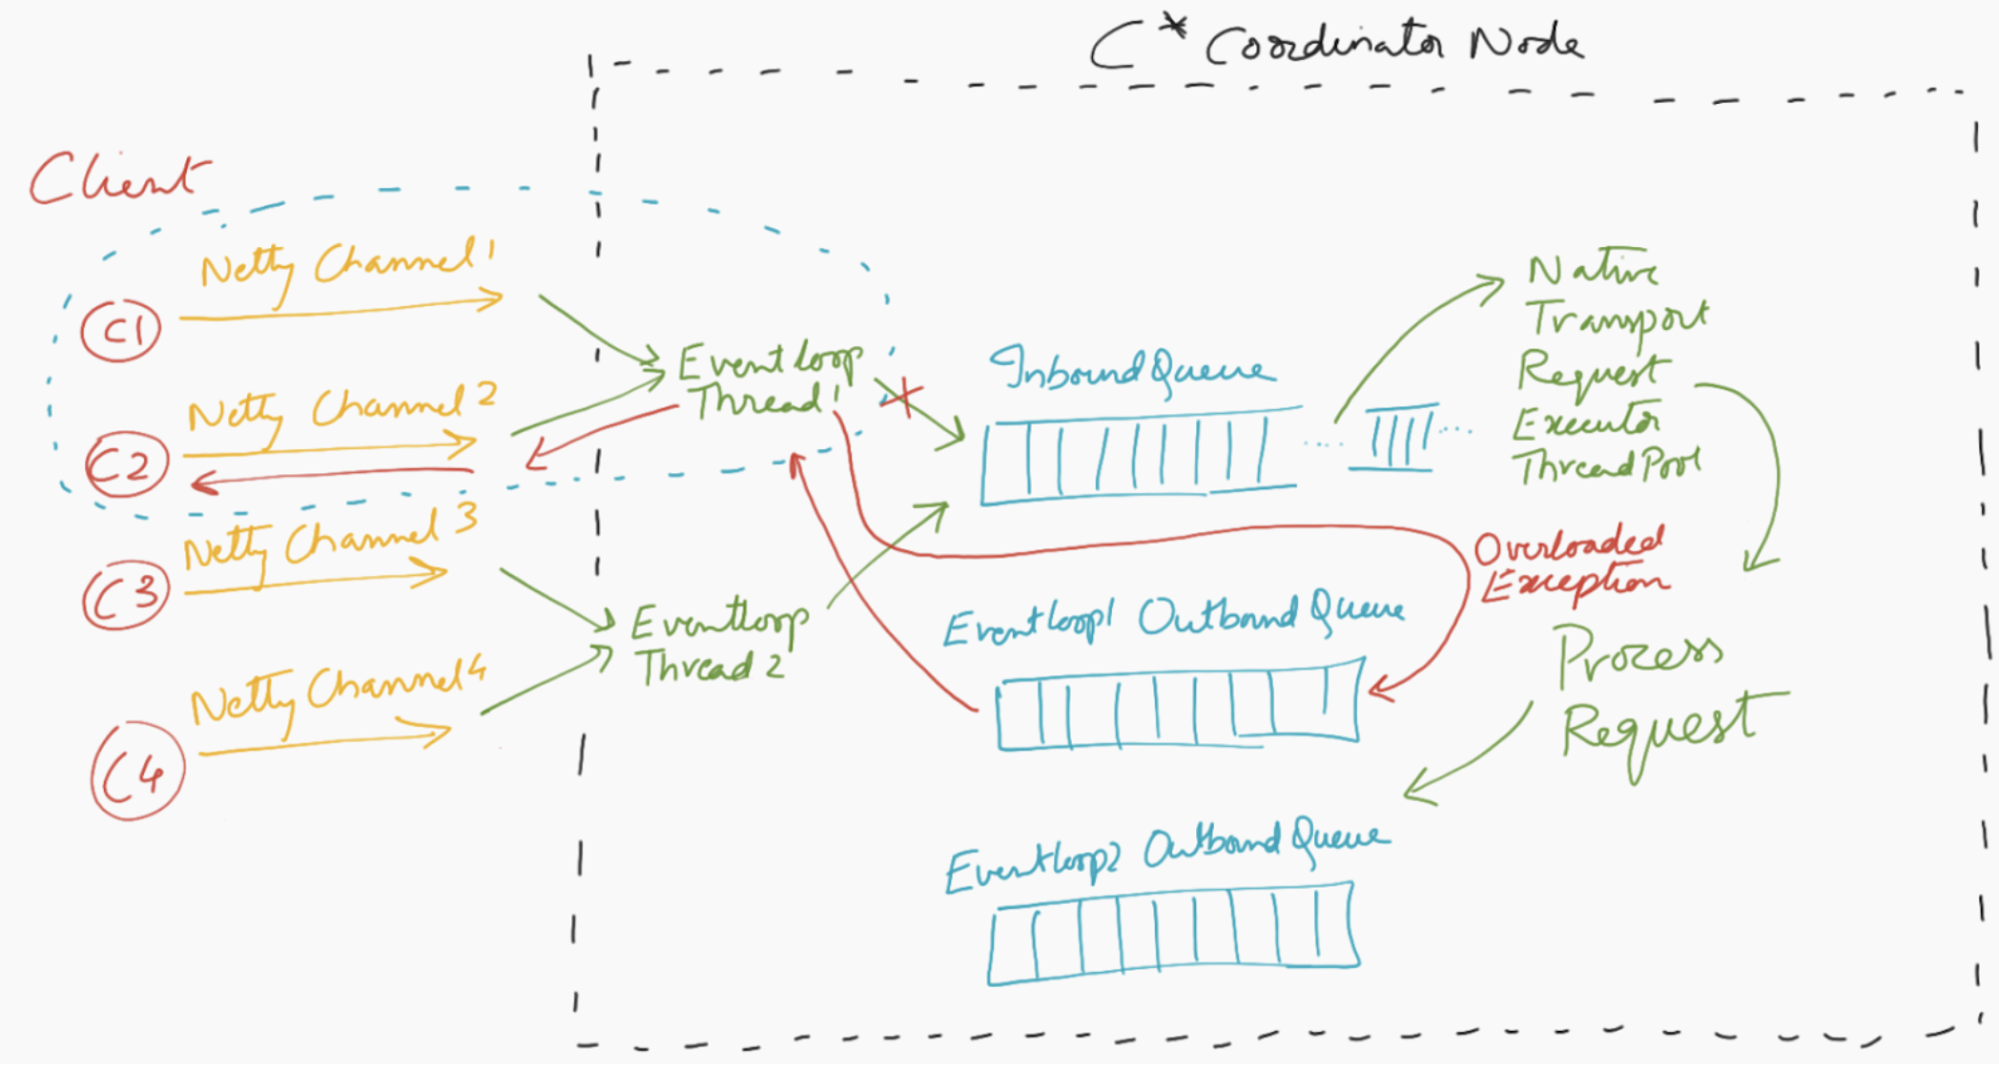 C* Coordinator Node
Client
Netty Channel 1
C1
Netty Channel 2
C2
Netty Channel 3
C3
Netty Channel 4
C4
Eventloop
Thread 1
Eventloop
Thread 2
InboundQueue
Native
Transport
Request
Executor
ThreadPool
Overloaded
Exception
Eventloop1 Outbound Queue
Process
Request
Eventloop2 Outbound Queue